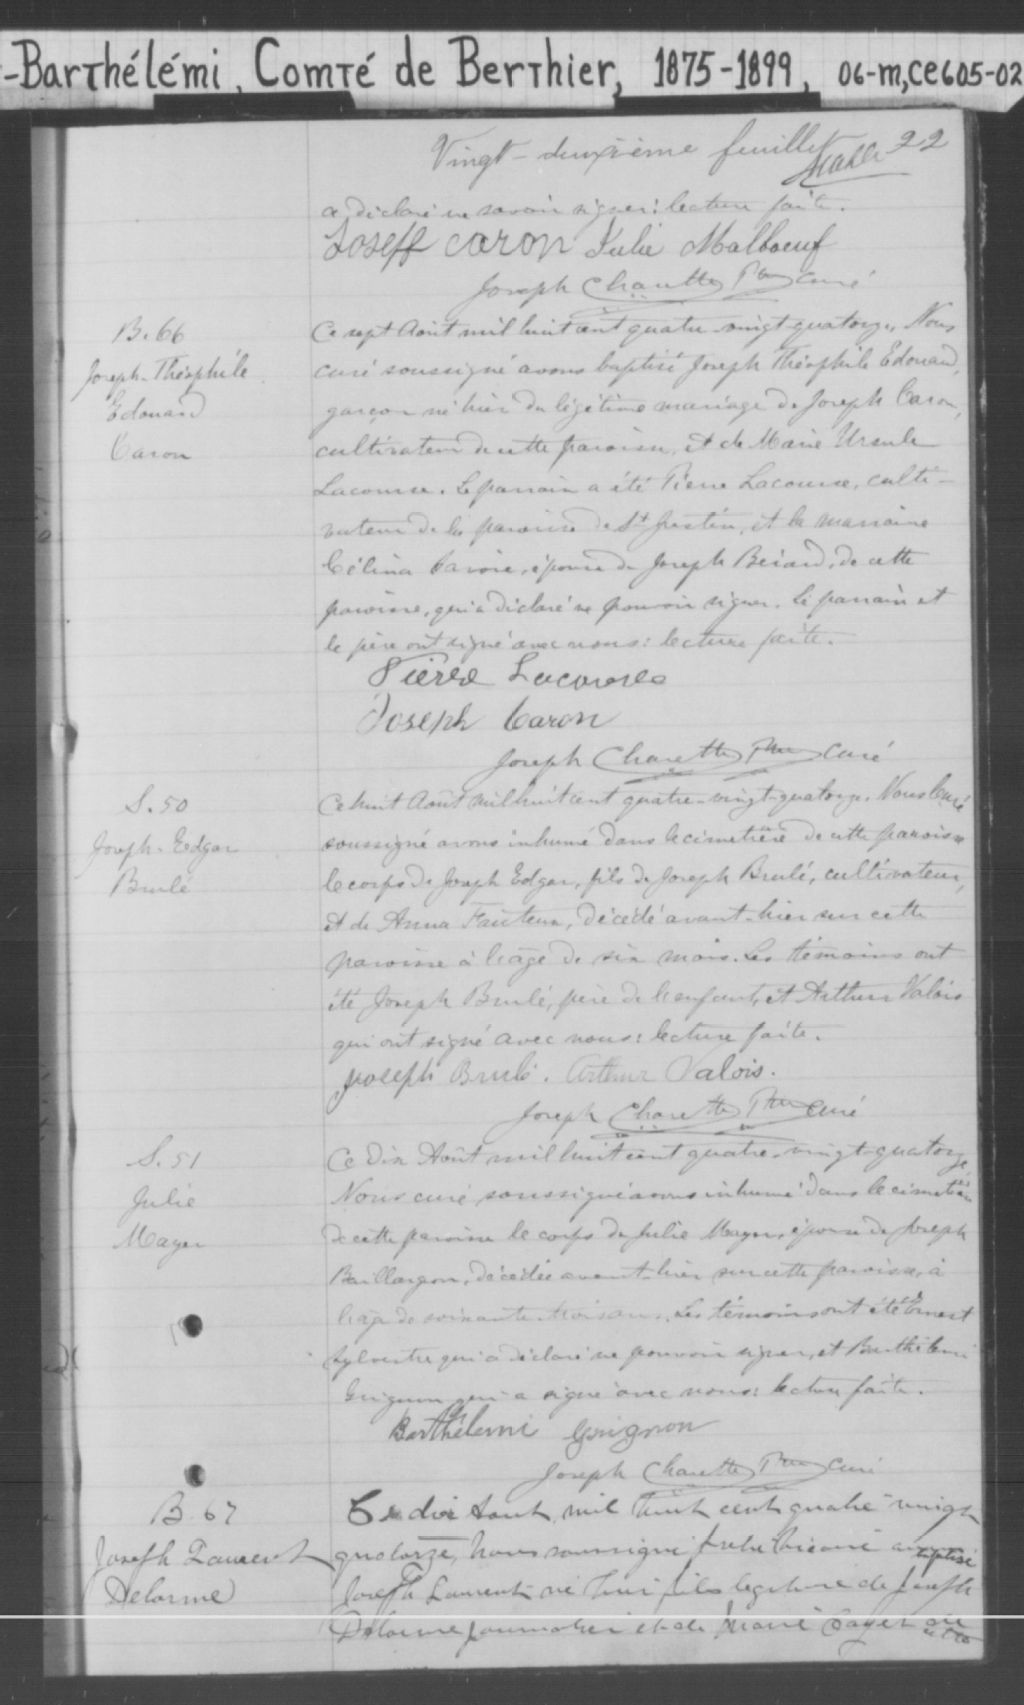 -Barthélémi, Comté de Berthier, 1875-1899, 06-m,CE605-02
Vingt-deuxième feuillet 22
a déclaré ne savoir signer: lecture faite.
Joseff caron Julie Malboeuf
Joseph Charette Ptre curé
B. 66
Joseph-Théophile
Edouard
Caron
Ce sept Août mil huit cent quatre-vingt-quatorze, Nous
curé soussigné avons baptisé Joseph Théophile Edouard,
garçon né hier du légitime mariage de Joseph Caron,
cultivateur de cette paroisse, et de Marie Ursule
Lacourse. Le parrain a été Pierre Lacourse, culti-
vateur de la paroisse de St Justin, et la marraine
Célina Savoie, épouse de Joseph Berard, de cette
paroisse, qui a déclaré ne pouvoir signer. Le parrain et
le père ont signé avec nous: lecture faite.
Pierre Lacourse
Joseph Caron
Joseph Charette Ptre curé
S. 50
Joseph-Edgar
Brulé
Ce huit Août mil huit cent quatre-vingt-quatorze, Nous Curé
soussigné avons inhumé dans le cimetière de cette paroisse
le corps de Joseph Edgar, fils de Joseph Brulé, cultivateur,
et de Anna Fauteux, décédé avant-hier sur cette
paroisse à l'âge de six mois. Les témoins ont
été Joseph Brulé, père de l'enfant, et Arthur Valois
qui ont signé avec nous: lecture faite.
Joseph Brulé. Arthur Valois.
Joseph Charette Ptre curé
S. 51
Julie
Mayer
Ce dix Août mil huit cent quatre-vingt-quatorze,
Nous curé soussigné avons inhumé dans le cimetière
de cette paroisse le corps de Julie Mayer, épouse de Joseph
Baillargeon, décédée avant-hier sur cette paroisse, à
l'âge de soixante-trois ans. Les témoins ont été Ernest
Sylvestre qui a déclaré ne pouvoir signer, et Barthélemi
Guignon qui a signé avec nous: lecture faite.
Barthélemi Guignon
Joseph Charette Ptre curé
B. 67
Joseph Laurent
Delorme
Ce dix Aout, mil huit cent quatre-vingt
quatorze, Nous soussigné prêtre vicaire avons baptisé
Joseph Laurent né hier fils légitime de Joseph
Delorme journalier et de Marie Cayer de
cette